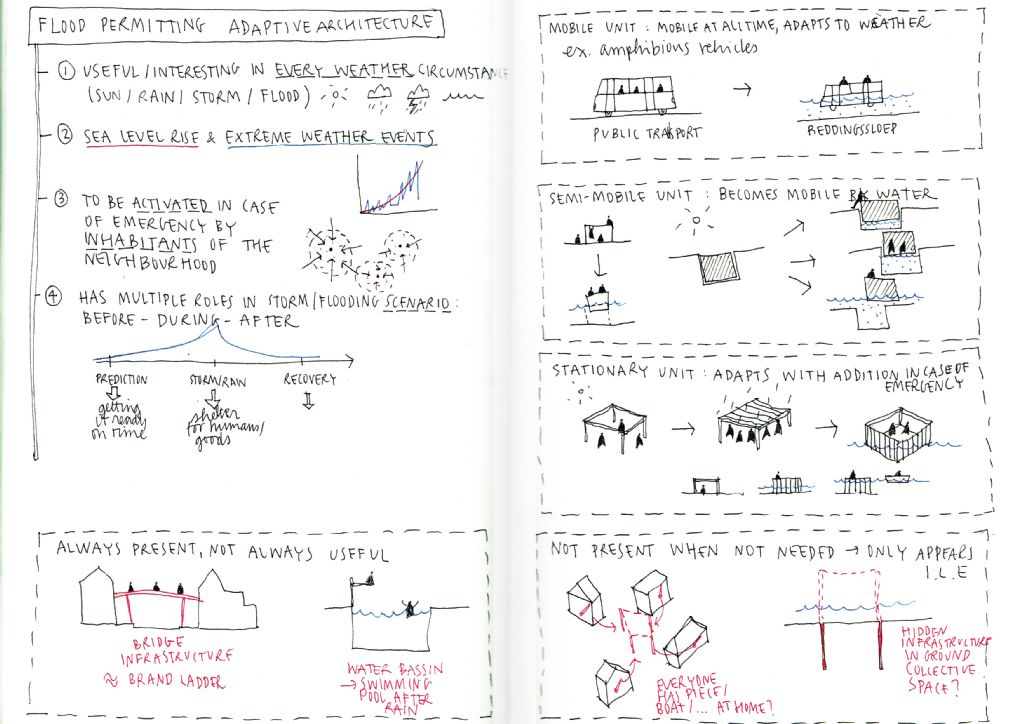 FLOOD PERMITTING ADAPTIVE ARCHITECTURE
① USEFUL/INTERESTING IN EVERY WEATHER CIRCUMSTANCE
(SUN/RAIN/STORM/FLOOD)
② SEA LEVEL RISE & EXTREME WEATHER EVENTS
③ TO BE ACTIVATED IN CASE
OF EMERGENCY BY
INHABITANTS OF THE
NEIGHBOURHOOD
④ HAS MULTIPLE ROLES IN STORM/FLOODING SCENARIO:
BEFORE - DURING - AFTER
PREDICTION
STORM/RAIN
RECOVERY
getting
it ready
on time
shelter
for humans/
goods
ALWAYS PRESENT, NOT ALWAYS USEFUL
BRIDGE
INFRASTRUCTURE
≈ BRAND LADDER
WATER BASSIN
→ SWIMMING
POOL AFTER
RAIN
MOBILE UNIT : MOBILE AT ALL TIME, ADAPTS TO WEATHER
ex. amphibious vehicles
→
PUBLIC TRANSPORT
REDDINGSSLOEP
SEMI-MOBILE UNIT : BECOMES MOBILE BY WATER
STATIONARY UNIT : ADAPTS WITH ADDITION IN CASE OF
EMERGENCY
NOT PRESENT WHEN NOT NEEDED → ONLY APPEARS
I.L.E
EVERYONE
HAS PIECE/
BOAT/... AT HOME?
HIDDEN
INFRASTRUCTURE
IN GROUND
COLLECTIVE
SPACE?